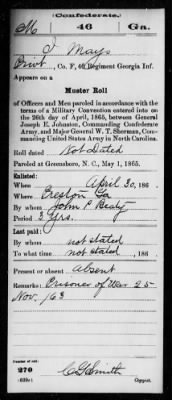 Confederate.
M 46 Ga.
J Mays
Privt, Co. F, 46 Regiment Georgia Inf.
Appears on a
Muster Roll
of Officers and Men paroled in accordance with the
terms of a Military Convention entered into on
the 26th day of April, 1865, between General
Joseph E. Johnston, Commanding Confederate
Army, and Major General W. T. Sherman, Com-
manding United States Army in North Carolina.
Roll dated Not Dated
Paroled at Greensboro, N. C., May 1, 1865.
Enlisted:
When April 30, 186 .
Where Preston Ga
By whom John P Beaty
Period 3 yrs.
Last paid:
By whom not stated
To what time not stated, 186 .
Present or absent Absent
Remarks: Prisoner of War 25
Nov. 63
Number of roll:
270
(639c) Copyist.